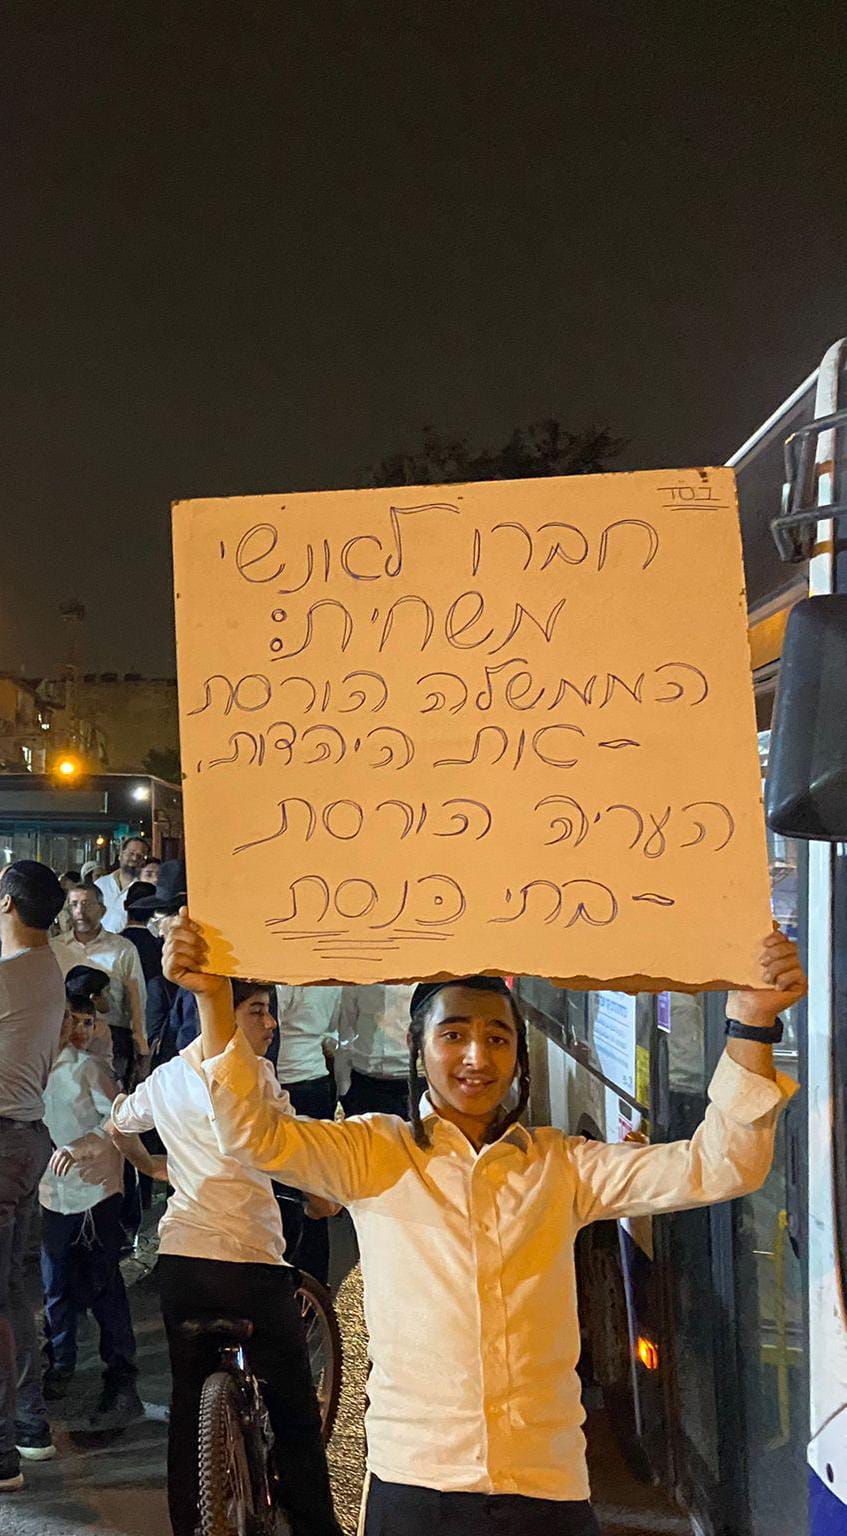 בסד
חברו לאונשי
משחית:
הממשלה הורסת
- אות היהדות.
העריה הורסת
- בתי כנסת